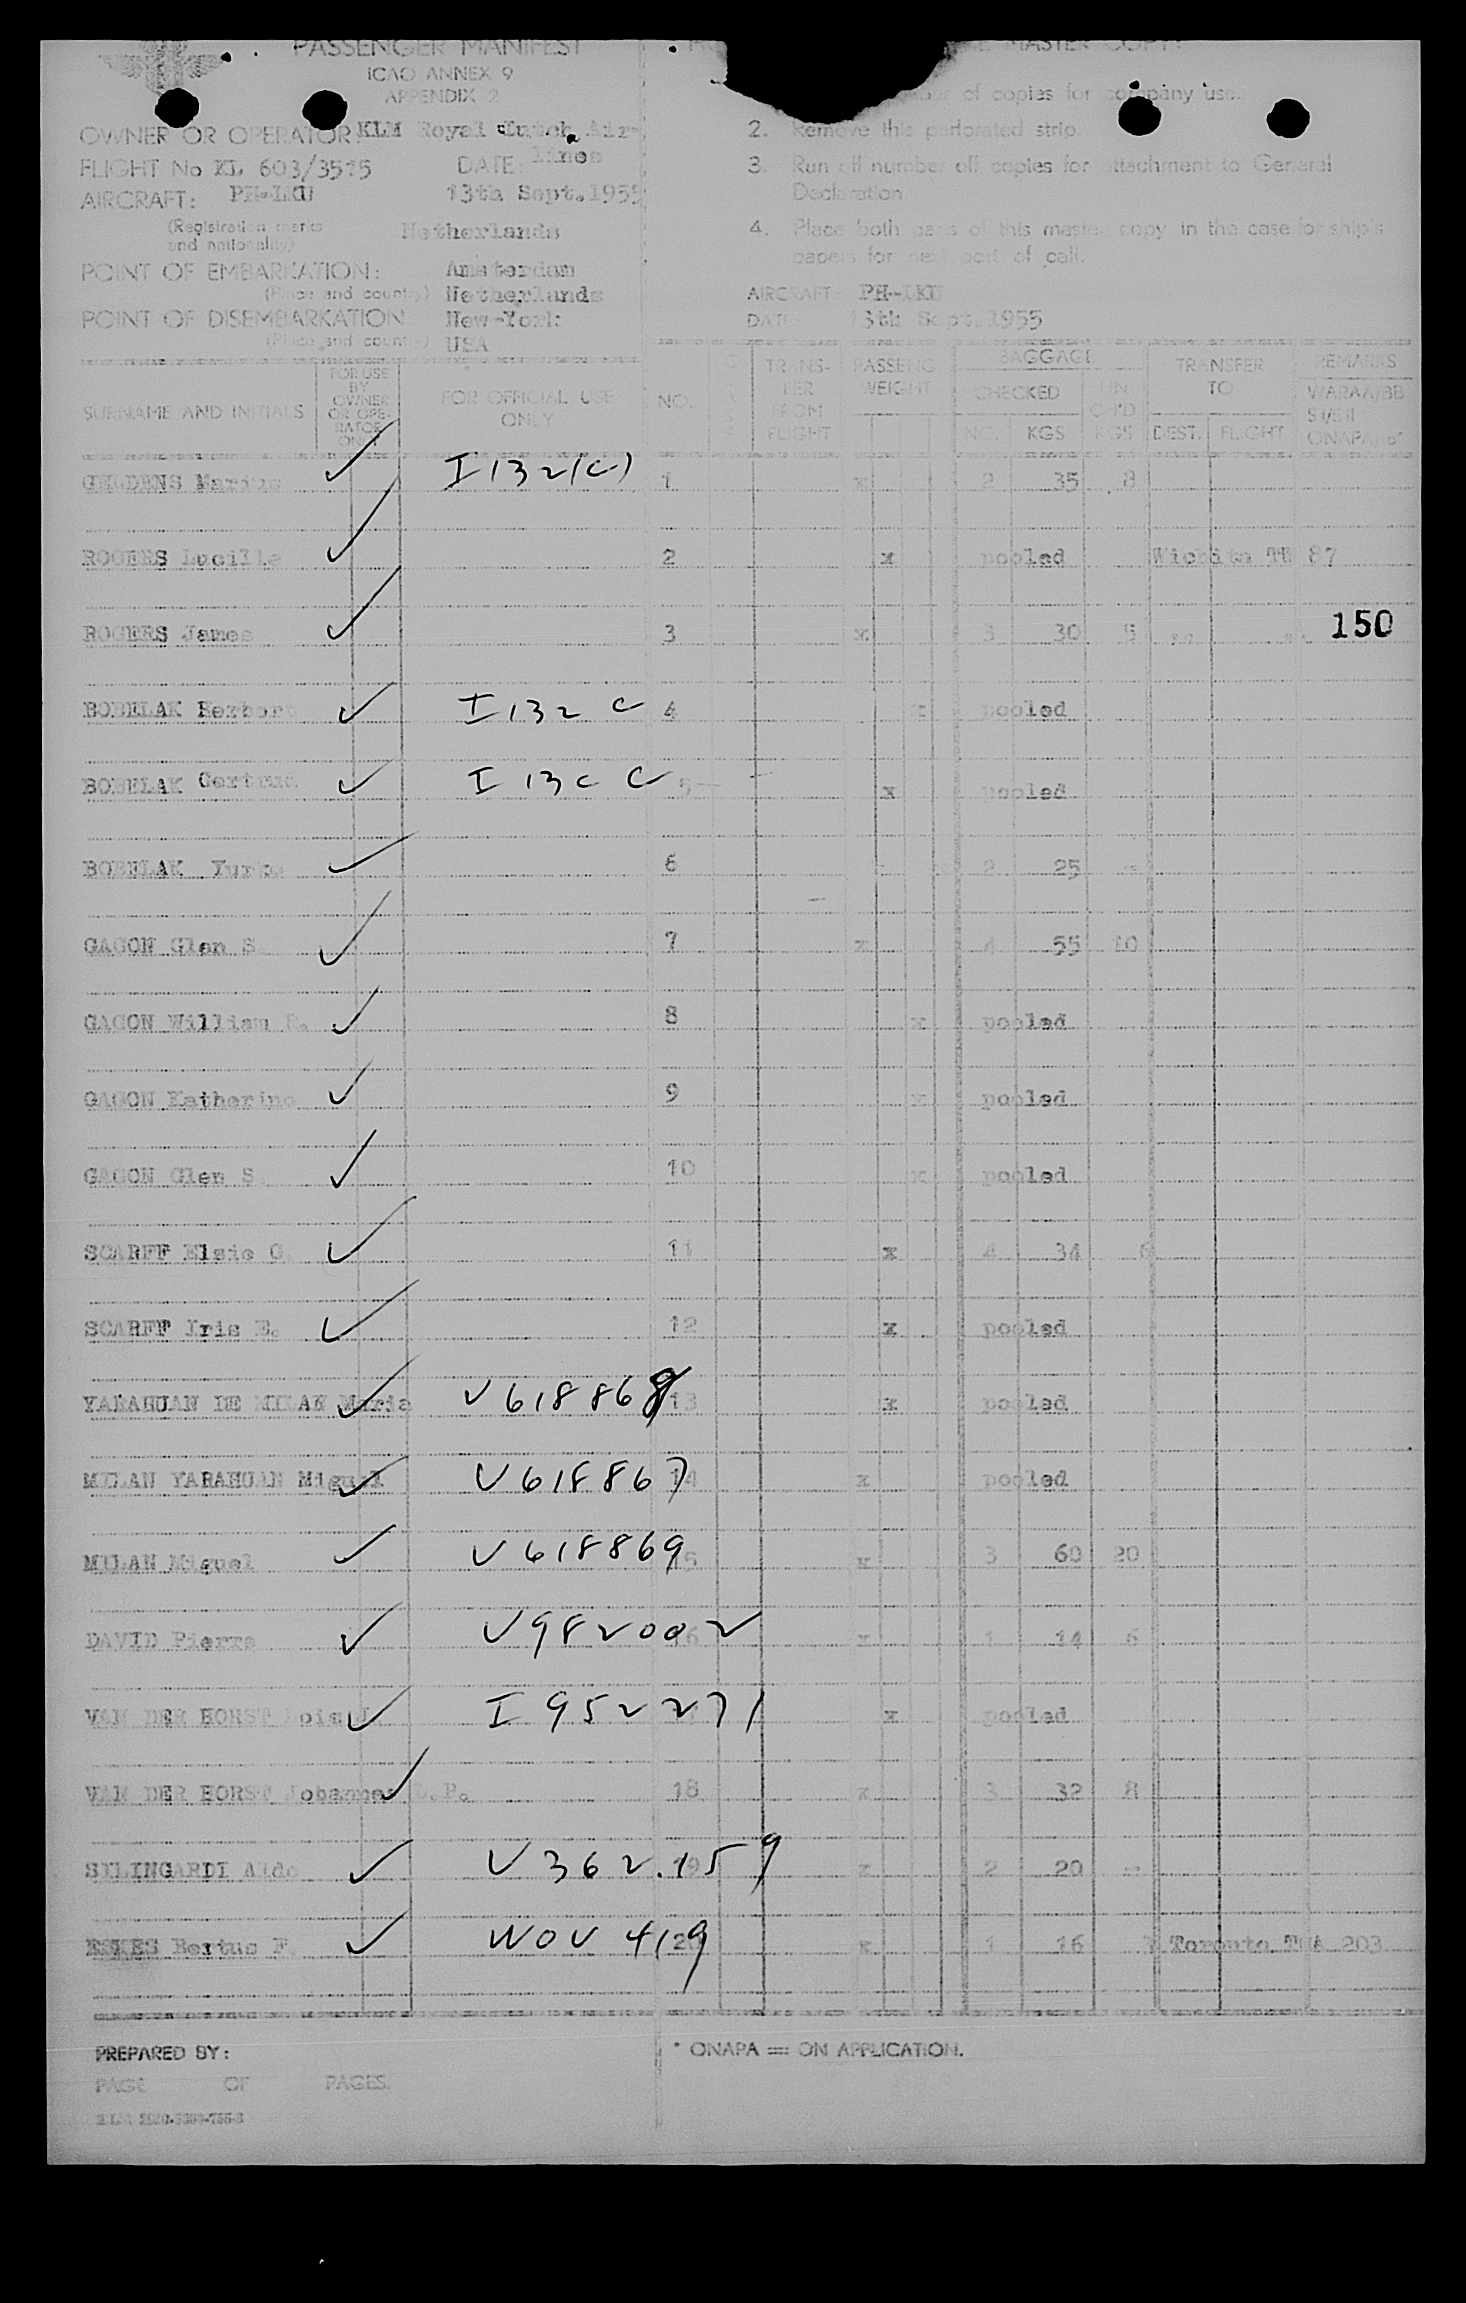 PASSENGER MANIFEST
ICAO ANNEX 9
APPENDIX 2
OWNER OR OPERATOR: KLM Royal Dutch Air-
lines
FLIGHT No KL 603/3515 DATE:
AIRCRAFT: PH-LKU 13th Sept.1955
(Registration marks
and nationality) Netherlands
POINT OF EMBARKATION: Amsterdam
(Place and country) Netherlands
POINT OF DISEMBARKATION New-York
(Place and country) USA
MASTER COPY:
of copies for company use.
2. Remove this perforated strip.
3. Run off number off copies for attachment to General
Declaration
4. Place both parts of this master copy in the case for ship's
papers for next port of call.
AIRCRAFT: PH-LKU
DATE 13th Sept.1955
SURNAME AND INITIALS
FOR USE
BY
OWNER
OR OPE-
RATOR
ONLY
FOR OFFICIAL USE
ONLY
NO.
TRANS-
FER
FROM
FLIGHT
PASSENG
WEIGHT
BAGGAGE
CHECKED
NO. KGS
UN
CH'D
KGS
TRANSFER
TO
DEST. FLIGHT
REMARKS
GELDENS Marius I 132(c) 1 x 2 35 8
ROGERS Lucille 2 x pooled Wichita TW 87
ROGERS James 3 x 3 30 5 150
BOBELAK Herbert I 132 C 4 x pooled
BOBELAK Gertrud I 13 C C 5 x pooled
BOBELAK Yurko 6 2 25 -
GAGON Glen S. 7 x 4 55 10
GAGON William R. 8 x pooled
GAGON Katherine 9 x pooled
GAGON Glen S. 10 x pooled
SCARFF Elsie G. 11 x 4 34 6
SCARFF Iris E. 12 x pooled
YARAHUAN DE MILAN Maria V 618868 13 x pooled
MILAN YARAHUAN Miguel V 618867 14 x pooled
MILAN Miguel V 618869 15 x 3 60 20
DAVID Pierre V 982002 16 x 1 14 6
VAN DER HORST Lois J. I 952271 x pooled
VAN DER HORST Johannes P. 18 x 3 32 8
SILINGARDI Aldo V 362.159 19 x 2 20 -
ESKES Bertus F WOV 419 20 x 1 16 Toronto TCA 203
PREPARED BY:
PAGE OF PAGES.
* ONAPA = ON APPLICATION.